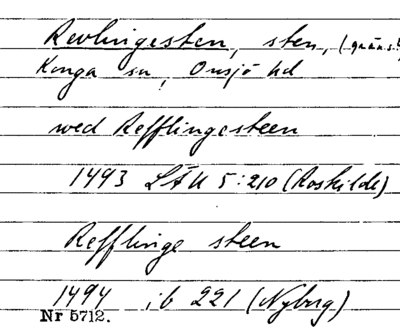 Revlingesten, sten, (gräns.)
Konga sn, Onsjö hd
wed Refflingesteen
1493 LÄU 5:210 (Roskilde)
Refflinge steen
1494 ib 221 (Nyborg)
Nr 5712.